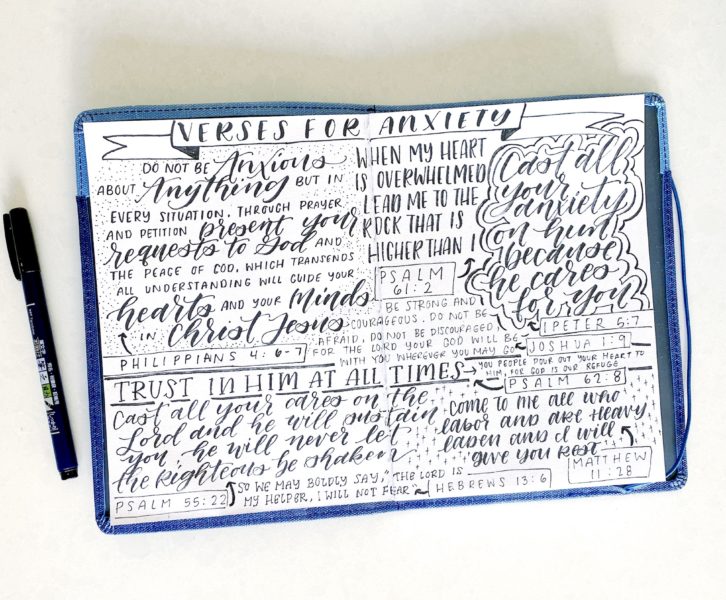 VERSES FOR ANXIETY
DO NOT BE Anxious
ABOUT Anything BUT IN
EVERY SITUATION, THROUGH PRAYER
AND PETITION present your
requests to God AND
THE PEACE OF GOD, WHICH TRANSENDS
ALL UNDERSTANDING WILL GUIDE YOUR
hearts AND YOUR Minds
IN Christ Jesus
PHILIPPIANS 4:6-7
WHEN MY HEART
IS OVERWHELMED
LEAD ME TO THE
ROCK THAT IS
HIGHER THAN I
PSALM
61:2
Cast all
your
anxiety
on him
because
he cares
for you
1 PETER 5:7
BE STRONG AND
COURAGEOUS. DO NOT BE
AFRAID, DO NOT BE DISCOURAGED,
FOR THE LORD YOUR GOD WILL BE
WITH YOU WHEREVER YOU MAY GO
JOSHUA 1:9
TRUST IN HIM AT ALL TIMES
YOU PEOPLE POUR OUT YOUR HEART TO
HIM, FOR GOD IS OUR REFUGE
PSALM 62:8
Cast all your cares on the
Lord and he will sustain
you he will never let
the righteous be shaken
PSALM 55:22
COME TO ME ALL WHO
LABOR AND ARE HEAVY
LADEN AND I WILL
GIVE YOU REST
MATTHEW
11:28
SO WE MAY BOLDLY SAY, "THE LORD IS
MY HELPER, I WILL NOT FEAR"
HEBREWS 13:6